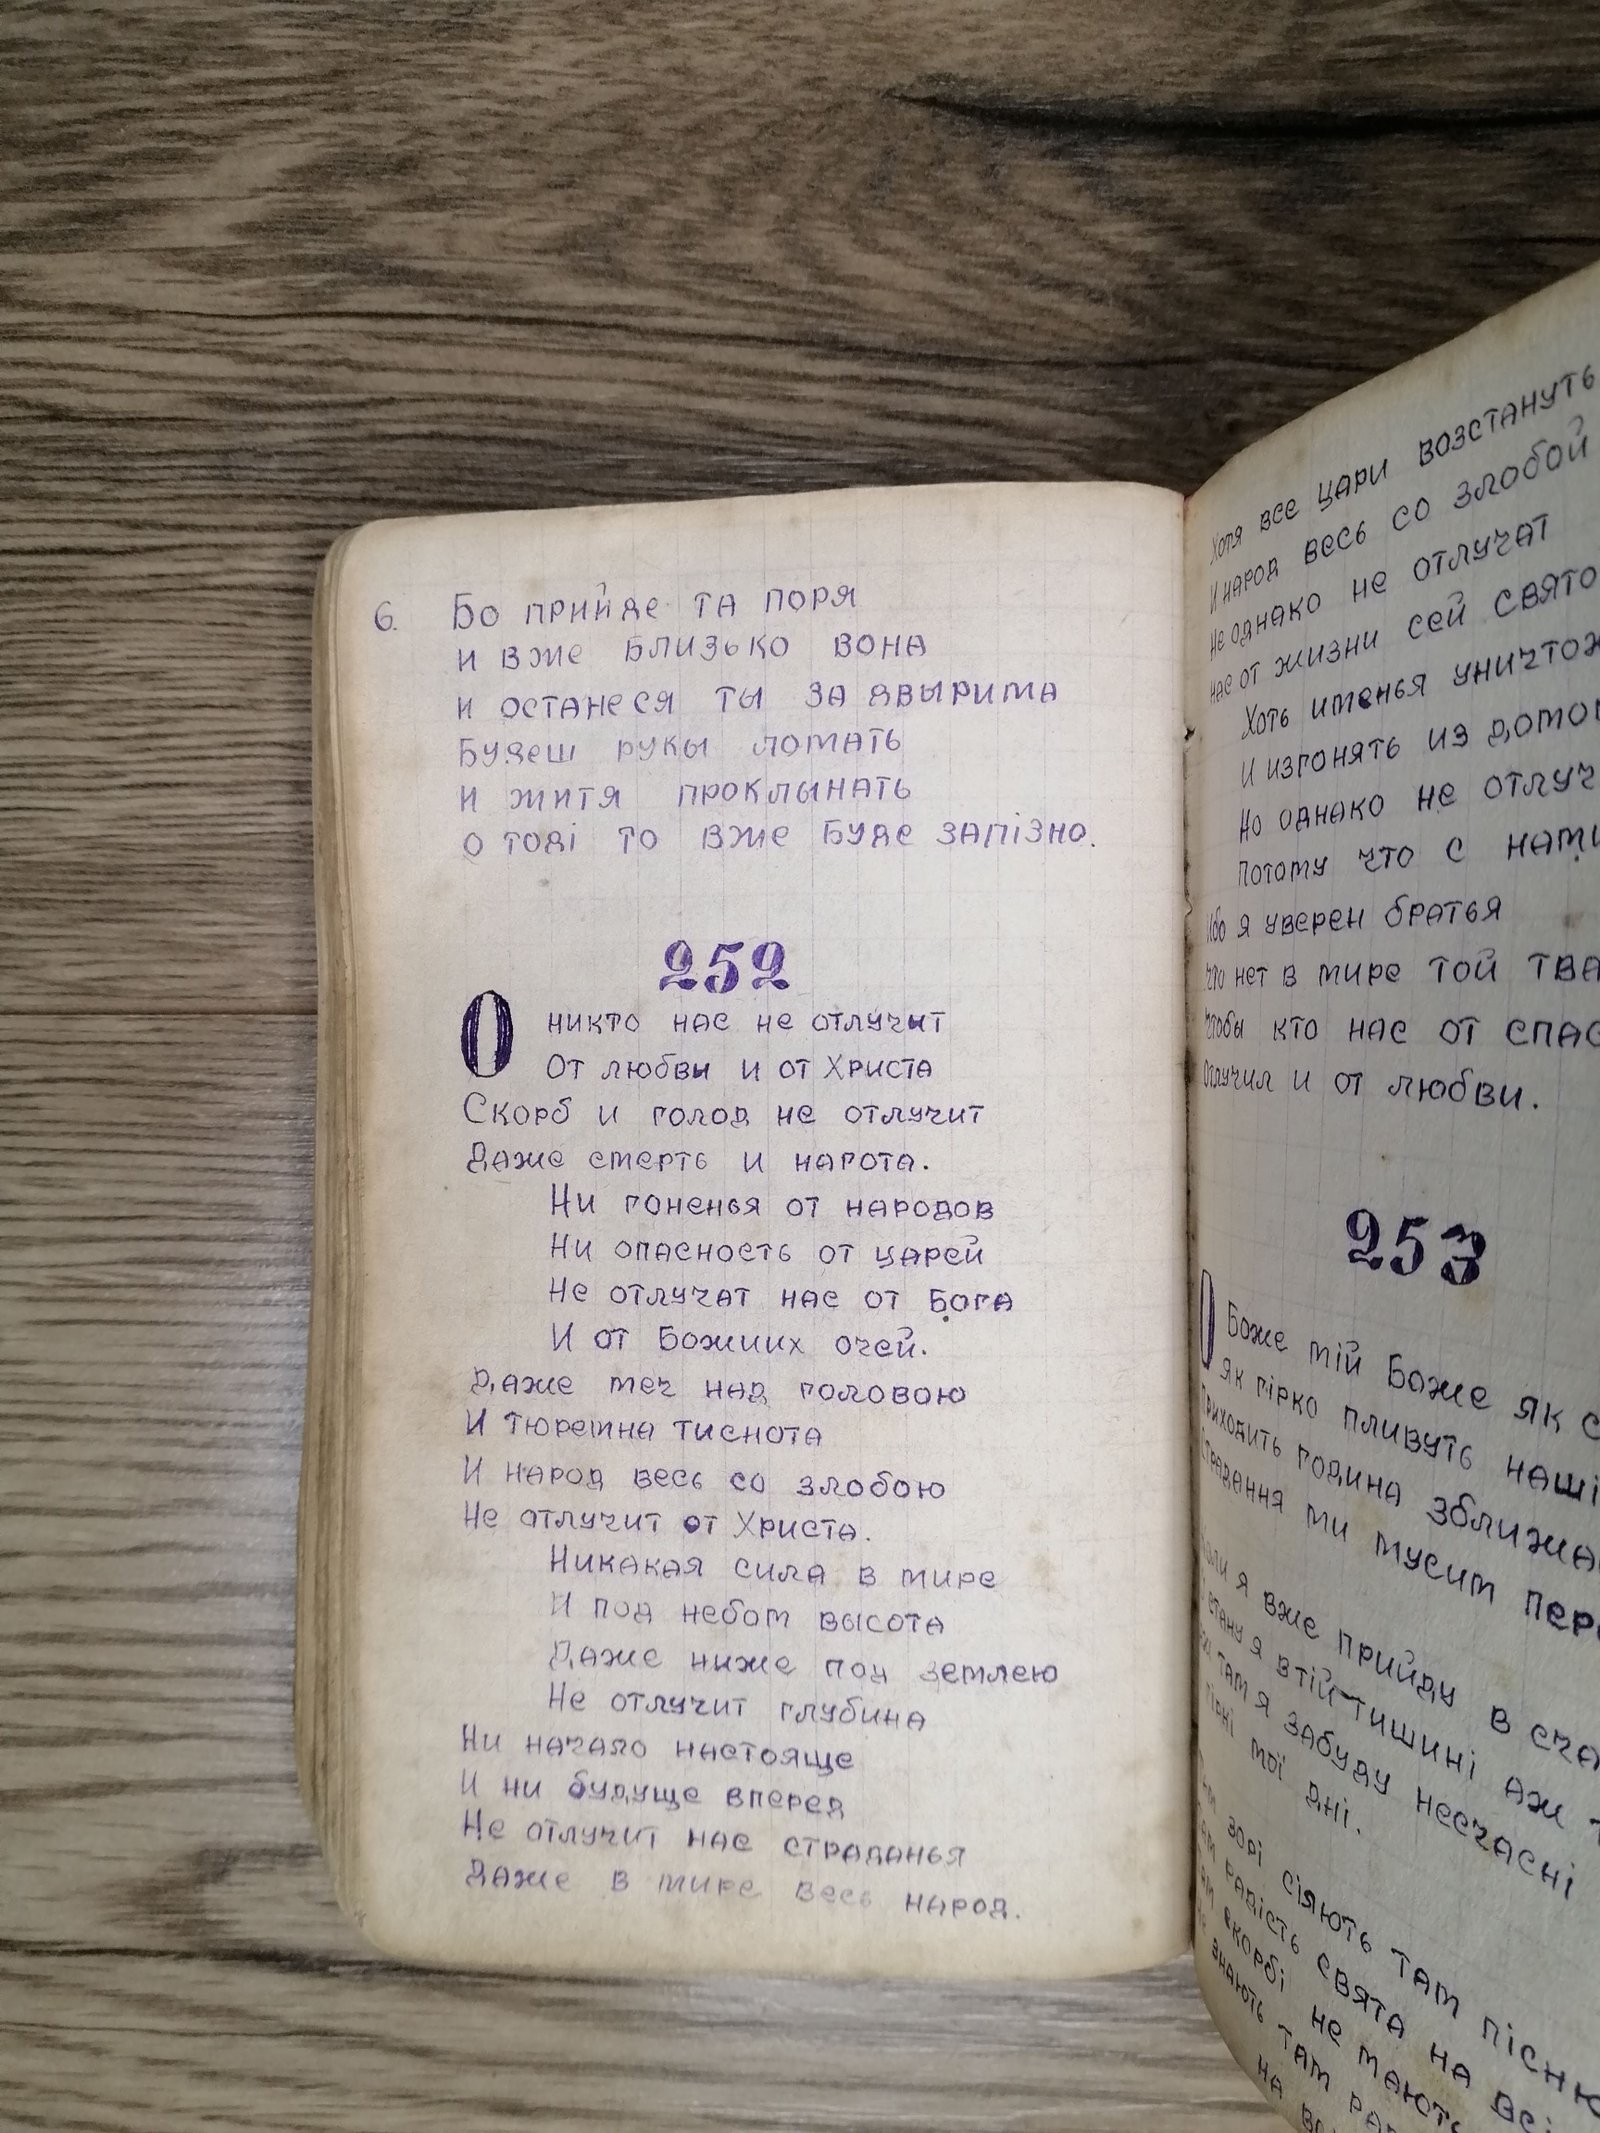 6. Бо прийде та поря
и вже близько вона
и останеся ты за двырима
Будеш рукы ломать
и житя проклынать
о тоді то вже буде запізно.
252
О никто нас не отлучит
От любвы и от Христа
Скорб и голод не отлучит
Даже смерть и нагота.
Ни гоненья от народов
Ни опасность от царей
Не отлучат нас от Бога
И от Божиих очей.
Даже меч над головою
И тюремна тиснота
И народ весь со злобою
Не отлучит от Христа.
Никакая сила в мире
И под небом высота
Даже ниже под землею
Не отлучит глубина
Ни начало настояще
И ни будуще вперед
Не отлучит нас страданья
Даже в мире весь народ.
Хотя все цари возстануть
И народ весь со злобой
Но однако не отлучат
Нас от жизни сей свято
Хоть именья уничтож
И изгонять из домо
Но однако не отлуч
Потому что с нами
Ибо я уверен братья
Что нет в мире той тва
Чтобы кто нас от спас
Отлучил и от любви.
253
О Боже мій Боже як с
Як гірко пливуть наші
Приходить година зближа
Страдання ми мусим пер
я вже прийду в сча
стану я в тій тишині аж
там я забуду несчасні
мої дні.
зорі сіяють там пісню
радість свята на всі
скорбі не мають
знають там
на